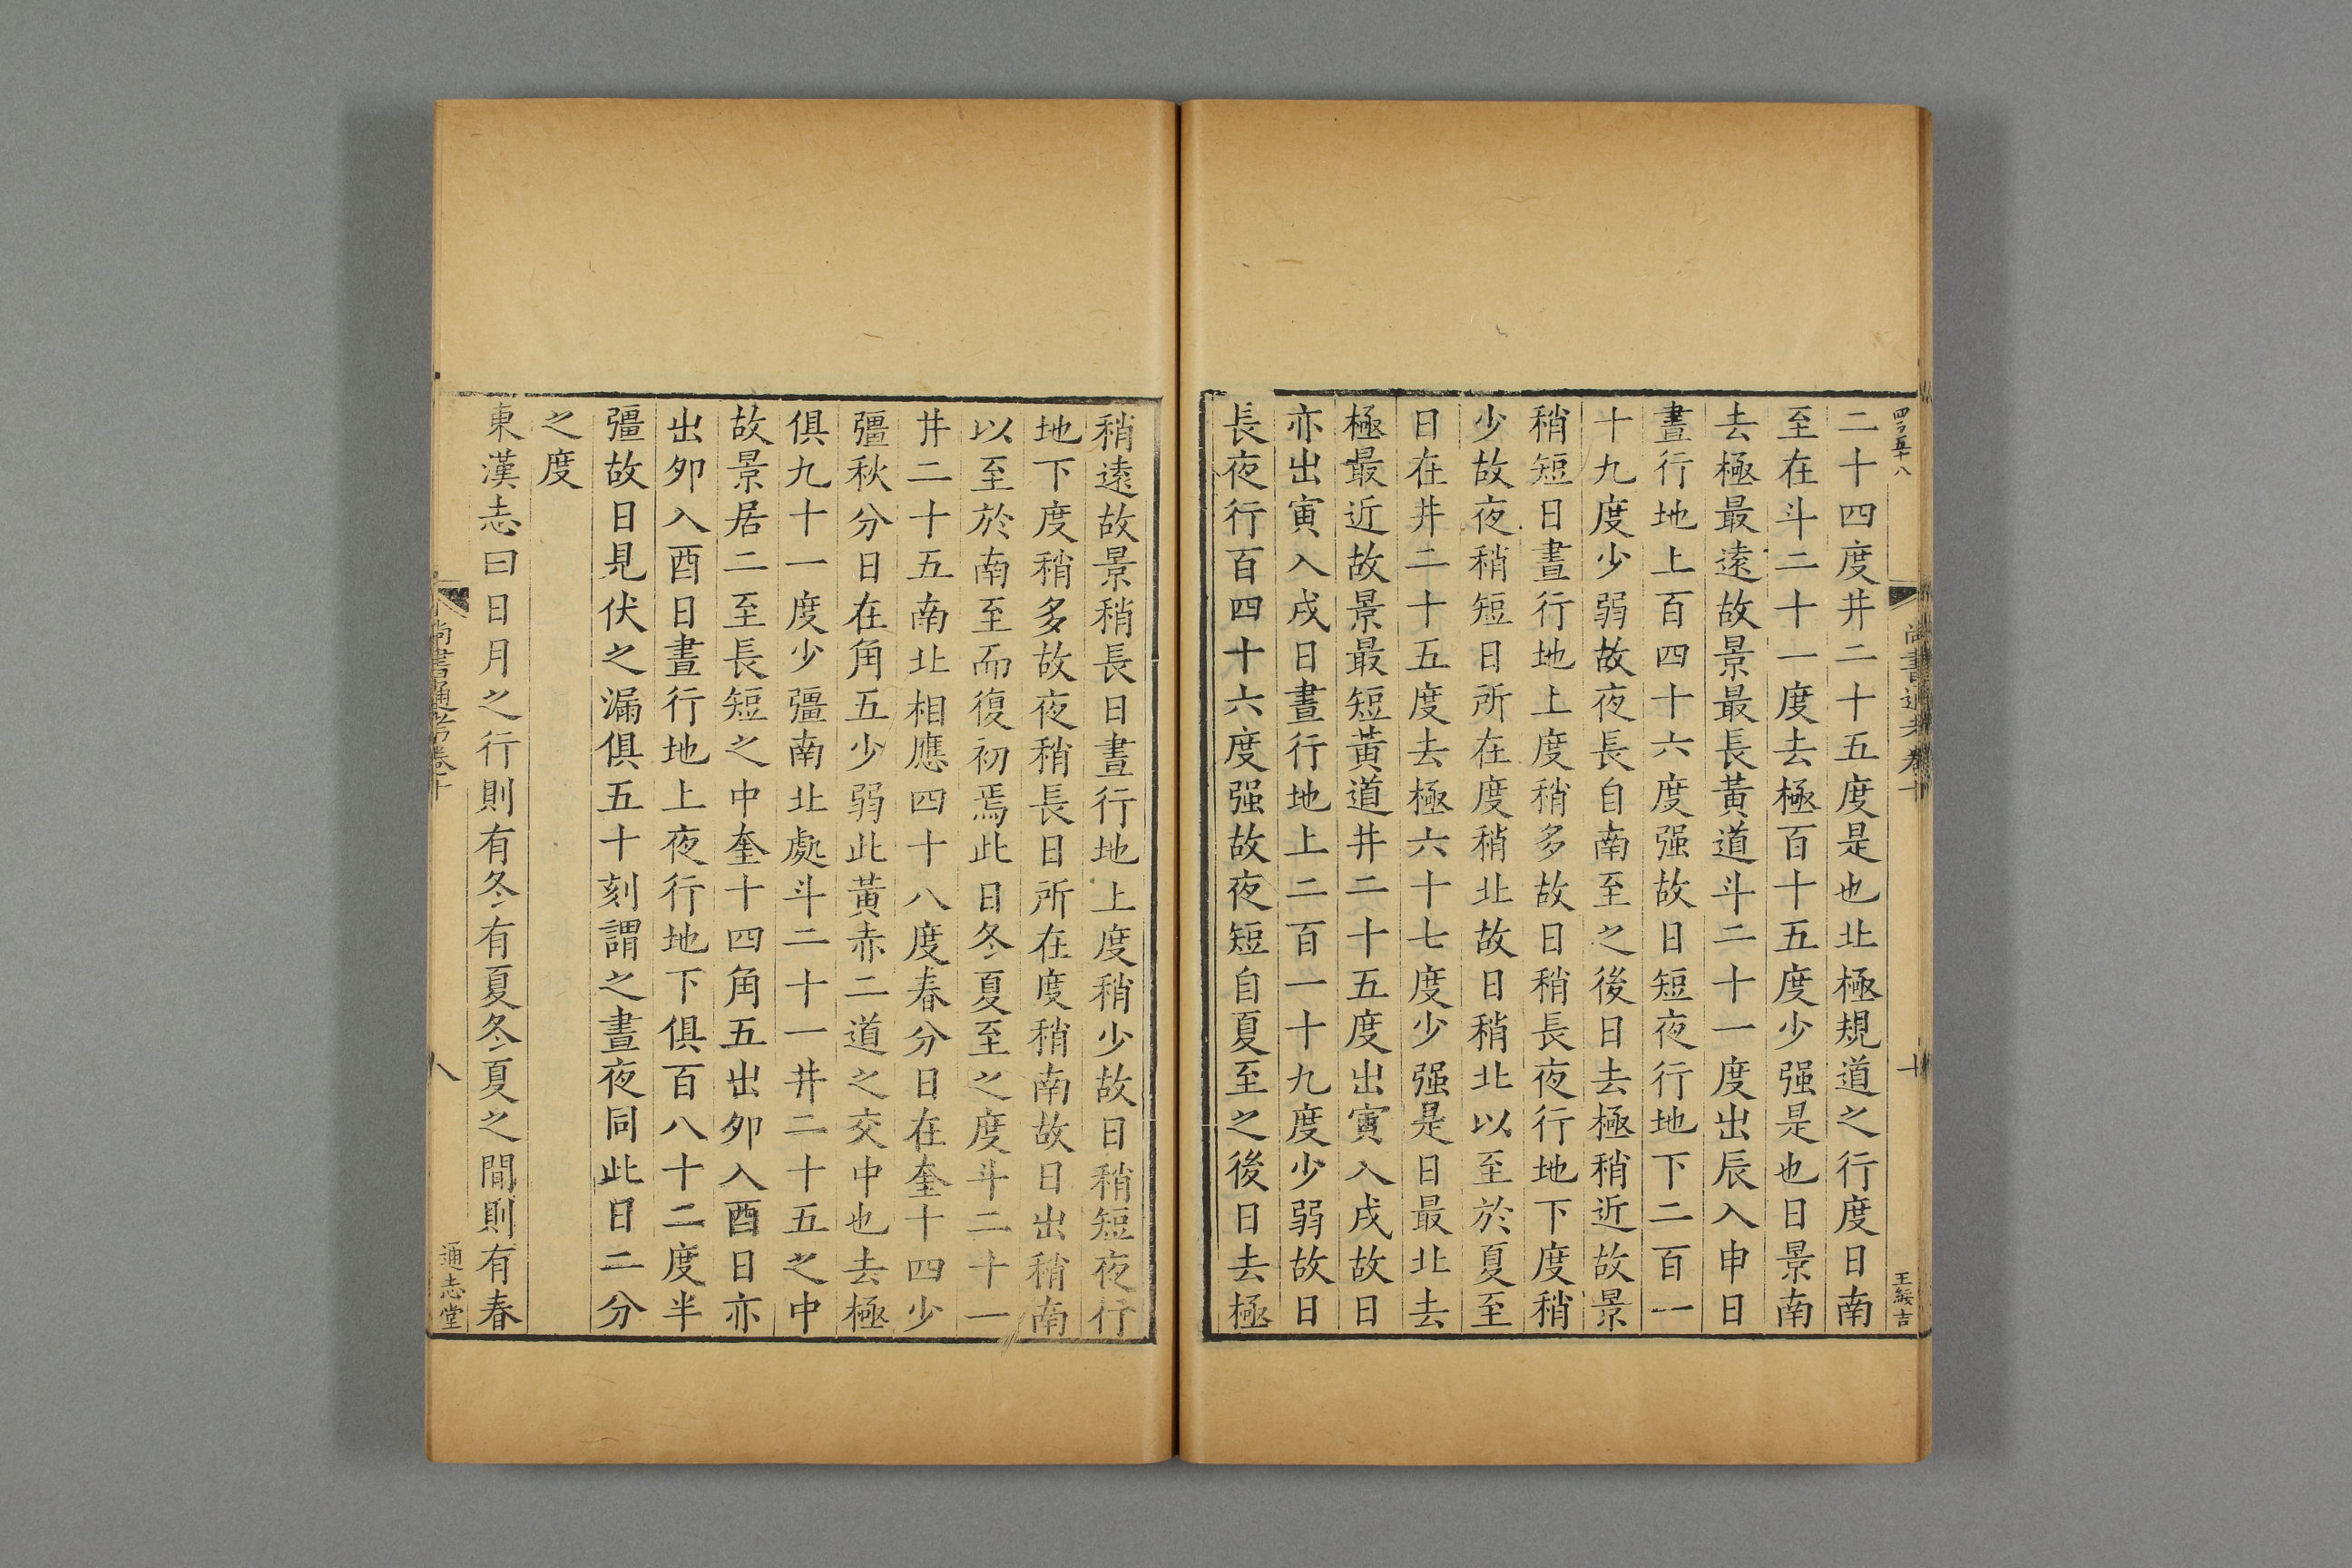 四百五十八
尚書通考卷十
十
王綏吉
二十四度井二十五度是也北極規道之行度日南
至在斗二十一度去極百十五度少强是也日景南
去極最遠故景最長黃道斗二十一度出辰入申日
晝行地上百四十六度强故日短夜行地下二百一
十九度少弱故夜長自南至之後日去極稍近故景
稍短日晝行地上度稍多故日稍長夜行地下度稍
少故夜稍短日所在度稍北故日稍北以至於夏至
日在井二十五度去極六十七度少强是日最北去
極最近故景最短黃道井二十五度出寅入戌故日
亦出寅入戌日晝行地上二百一十九度少弱故日
長夜行百四十六度强故夜短自夏至之後日去極
稍遠故景稍長日晝行地上度稍少故日稍短夜行
地下度稍多故夜稍長日所在度稍南故日出稍南
以至於南至而復初焉此日冬夏至之度斗二十一
井二十五南北相應四十八度春分日在奎十四少
彊秋分日在角五少弱此黃赤二道之交中也去極
俱九十一度少彊南北處斗二十一井二十五之中
故景居二至長短之中奎十四角五出卯入酉日亦
出卯入酉日晝行地上夜行地下俱百八十二度半
彊故日見伏之漏俱五十刻謂之晝夜同此日二分
之度
東漢志曰日月之行則有冬有夏冬夏之間則有春
尚書通考卷十
八
通志堂